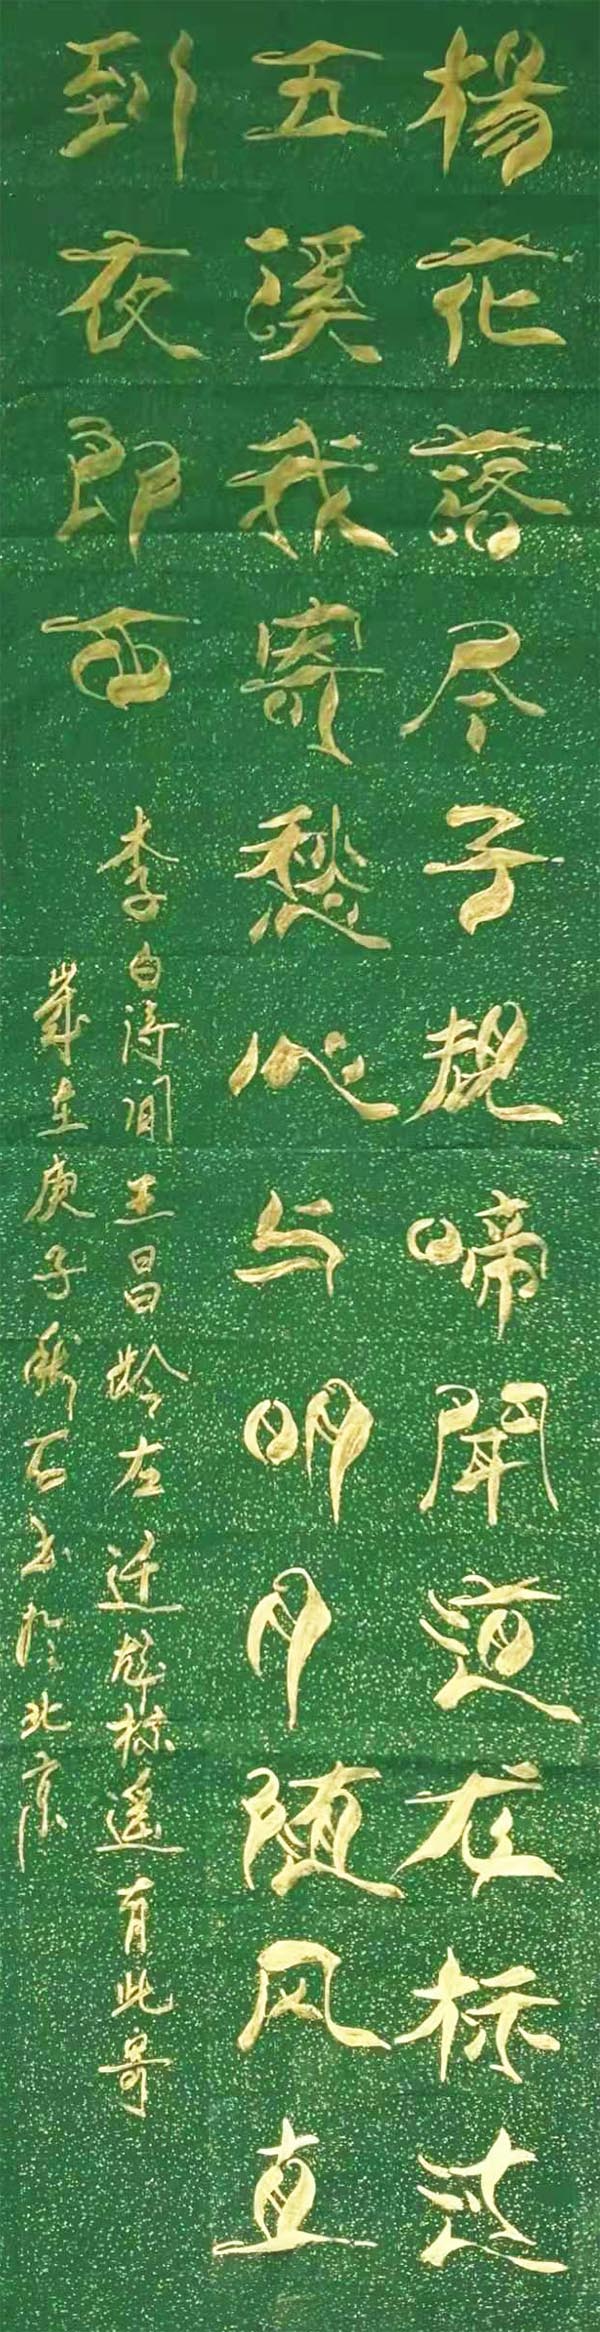 楊花落尽子规啼聞道龙标过
五溪我寄愁心与明月随风直
到夜郎西
李白诗闻王昌龄左迁龙标遥有此寄
歲在庚子 石书於北京